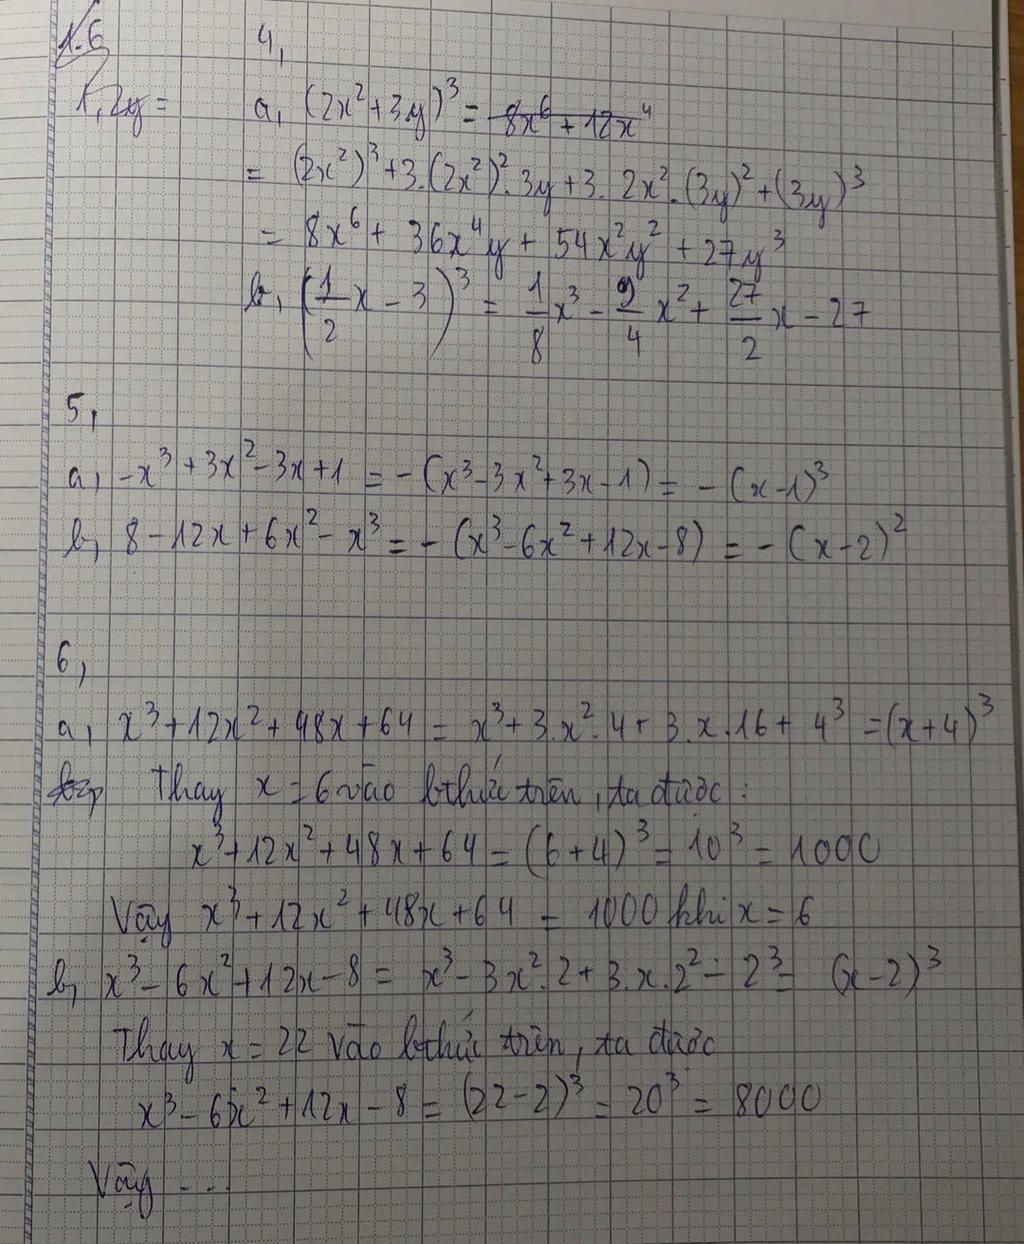 1.6
4,
1, 2y =
a, (2x² + 3y)³ = 8x⁶ + 12x⁴
= (2x²)³ + 3.(2x²)². 3y + 3. 2x². (3y)² + (3y)³
= 8x⁶ + 36x⁴y + 54x²y² + 27y³
b, (1/2 x - 3)³ = 1/8 x³ - 9/4 x² + 27/2 x - 27
5,
a, -x³ + 3x² - 3x + 1 = - (x³ - 3x² + 3x - 1) = - (x - 1)³
b, 8 - 12x + 6x² - x³ = - (x³ - 6x² + 12x - 8) = - (x - 2)²
6,
a, x³ + 12x² + 48x + 64 = x³ + 3.x². 4 + 3.x.16 + 4³ = (x + 4)³
Thay x = 6 vào bthức trên, ta được :
x³ + 12x² + 48x + 64 = (6 + 4)³ = 10³ = 1000
Vậy x³ + 12x² + 48x + 64 = 1000 khi x = 6
b, x³ - 6x² + 12x - 8 = x³ - 3x². 2 + 3.x.2² - 2³ = (x - 2)³
Thay x = 22 vào bthức trên, ta được
x³ - 6x² + 12x - 8 = (22 - 2)³ = 20³ = 8000
Vậy ...